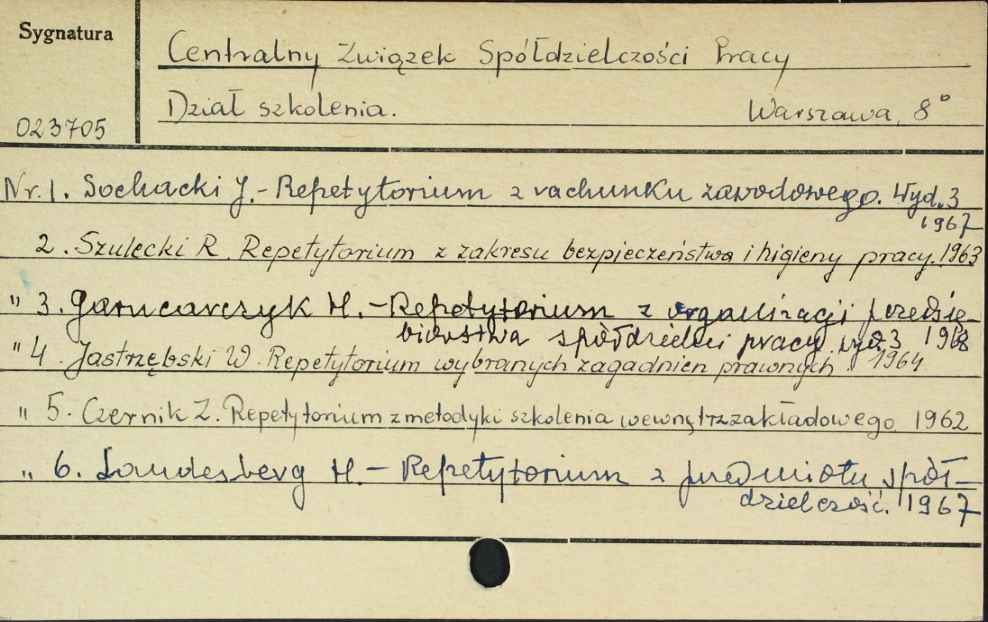 Sygnatura
Centralny Związek Spółdzielczości Pracy
Dział szkolenia. Warszawa, 8°
023705
Nr. 1. Sochacki J. - Repetytorium z rachunku zawodowego. Wyd. 3
1967
2. Szulęcki R. Repetytorium z zakresu bezpieczeństwa i higieny pracy. 1963
" 3. Garncarczyk H. - Repetytorium z organizacji przedsię-
biorstwa spółdzielni pracy wyd. 3 1968
" 4. Jastrzębski W. Repetytorium wybranych zagadnień prawnych. 1964
" 5. Czernik Z. Repetytorium z metodyki szkolenia wewnątrzzakładowego 1962
" 6. Landesberg H. - Repetytorium z przedmiotu spół-
dzielczość. 1967